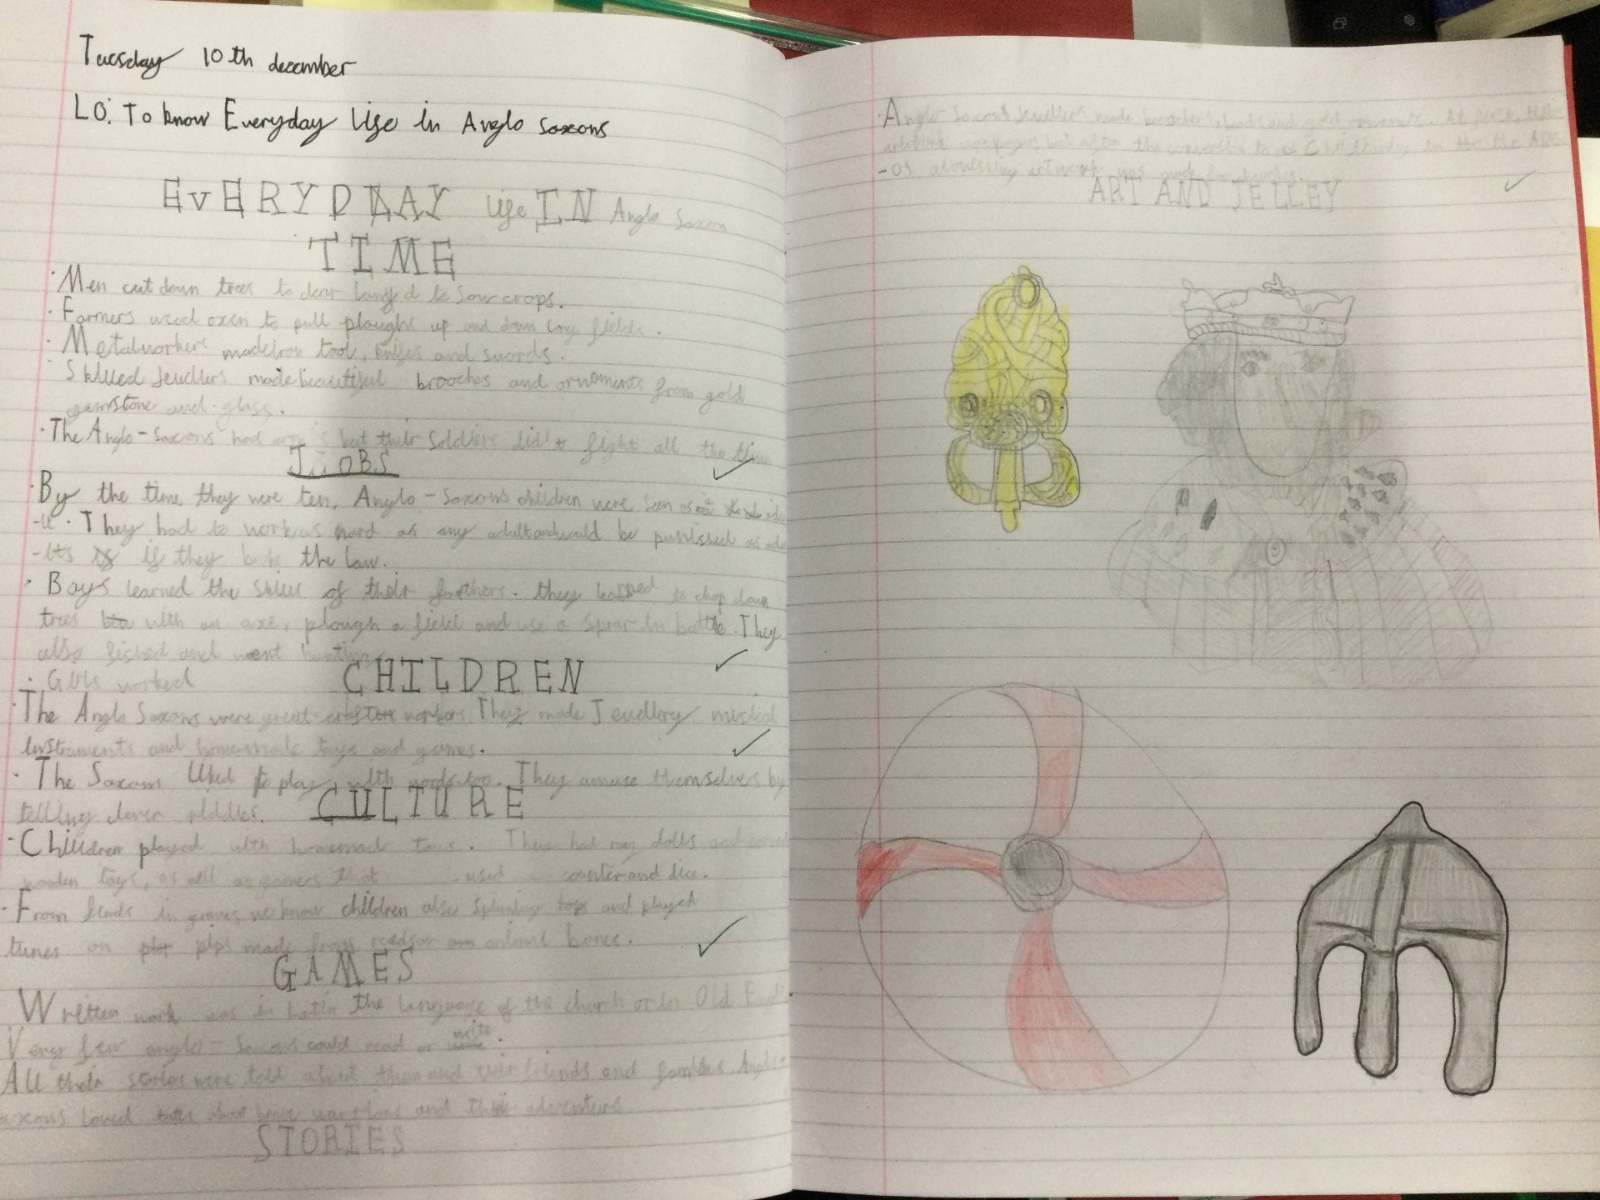 Tuesday 10th december
LO: To know Everyday life in Anglo saxons
EvERYDAY life IN Anglo Saxon
TIME
· Men cut down trees to clear land to sow crops.
· Farmers used oxen to pull ploughs up and down fields.
· Metalworkers made iron tool, knifes and swords.
Skilled Jewllers made beautiful brooches and ornaments from gold
gemstone and glass.
· The Anglo-saxons had but their soldiers did't fight all the time
JoBS
By the time they were ten, Anglo-saxons children were seen as
· They had to work as hard as any adult and would be punished as adu
-lts if they broke the law.
· Boys learned the skills of their fathers. they learned to chop down
trees with an axe, plough a field and use a spear in battle. They
also fished and went hunting
· Girls worked
CHILDREN
· The Anglo Saxons were great workers They made Jewellery musical
instraments and homemade toys and games.
· The Saxons liked to play with words too. They amuse themselves by
telling clever riddles.
CULTURE
· Children played with homemade toys. They had dolls and
wooden toys, as well as games that used counter and dice.
· From finds in graves we know children also spinning tops and played
tunes on pips made from reeds or animal bones.
GAMES
Written work was in Latin the language of the church or in Old
Very few anglo-saxons could read or write.
All their stories were told about them and their friends and families Anglo-
saxons loved tales about brave warriors and their adventures
STORIES
· Anglo-saxons Jewellers made brooches, and gold At first, the
artwork was pagan but after the conversion to Christianity in the
artwork was made for churches.
ART AND JELLEY